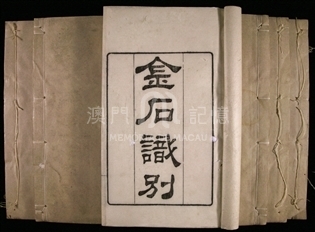 金石識別
澳門記憶
MEMORY OF MACAU